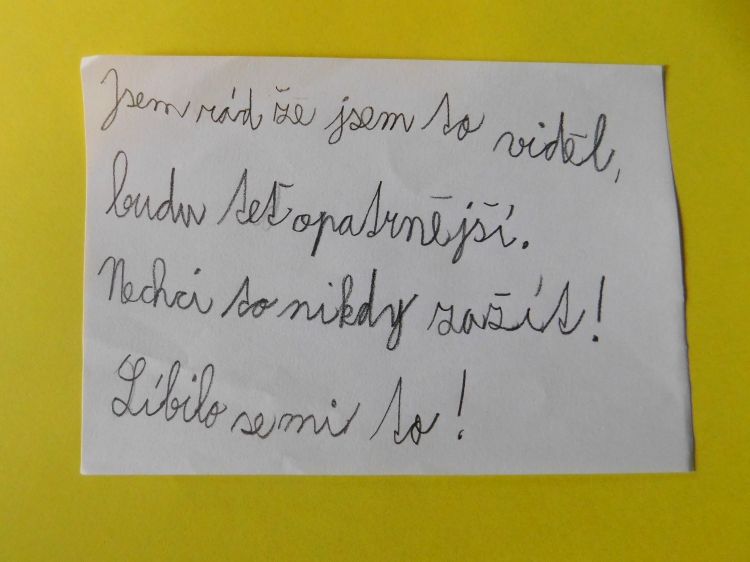 Jsem rád že jsem to viděl,
budu teť opatrnější.
Nechci to nikdy zažít!
Líbilo se mi to!